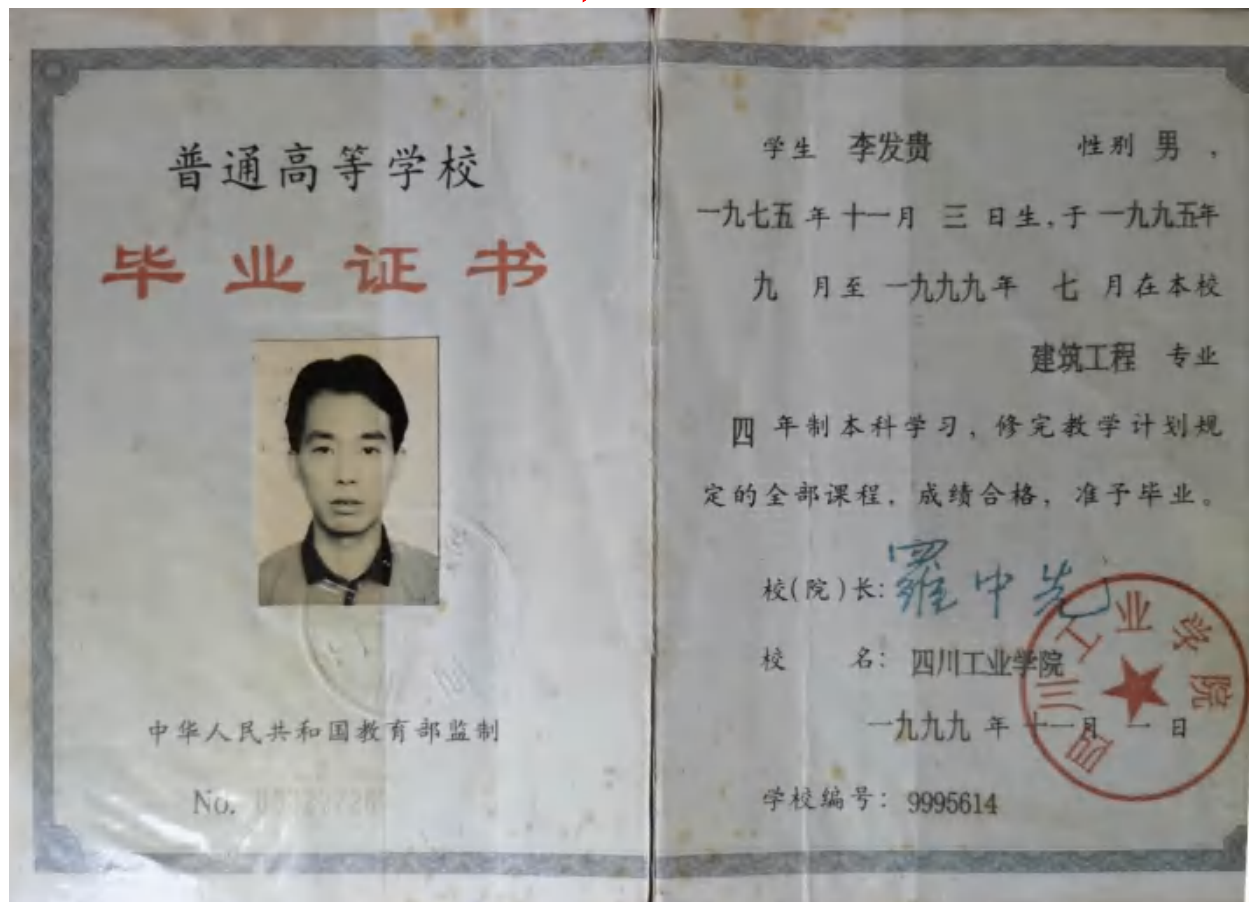 普通高等学校
毕业证书
中华人民共和国教育部监制
No.
学生 李发贵 性别 男 ,
一九七五年十一月 三 日生,于 一九九五年
九 月至 一九九九年 七 月在本校
建筑工程 专业
四 年制本科学习, 修完教学计划规
定的全部课程, 成绩合格, 准予毕业。
校(院)长: 羅中先
校 名: 四川工业学院
一九九九 年 十一月 一 日
学校编号: 9995614
四川工业学院